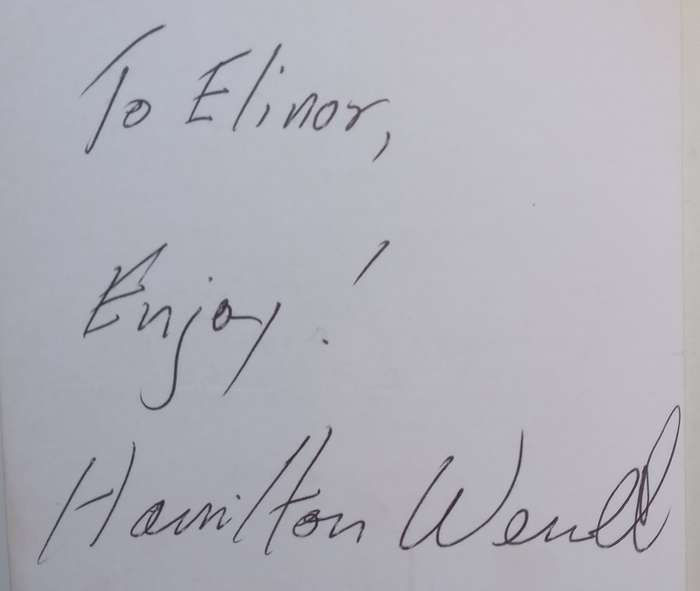 To Elinor,
Enjoy!
Hamilton Wende